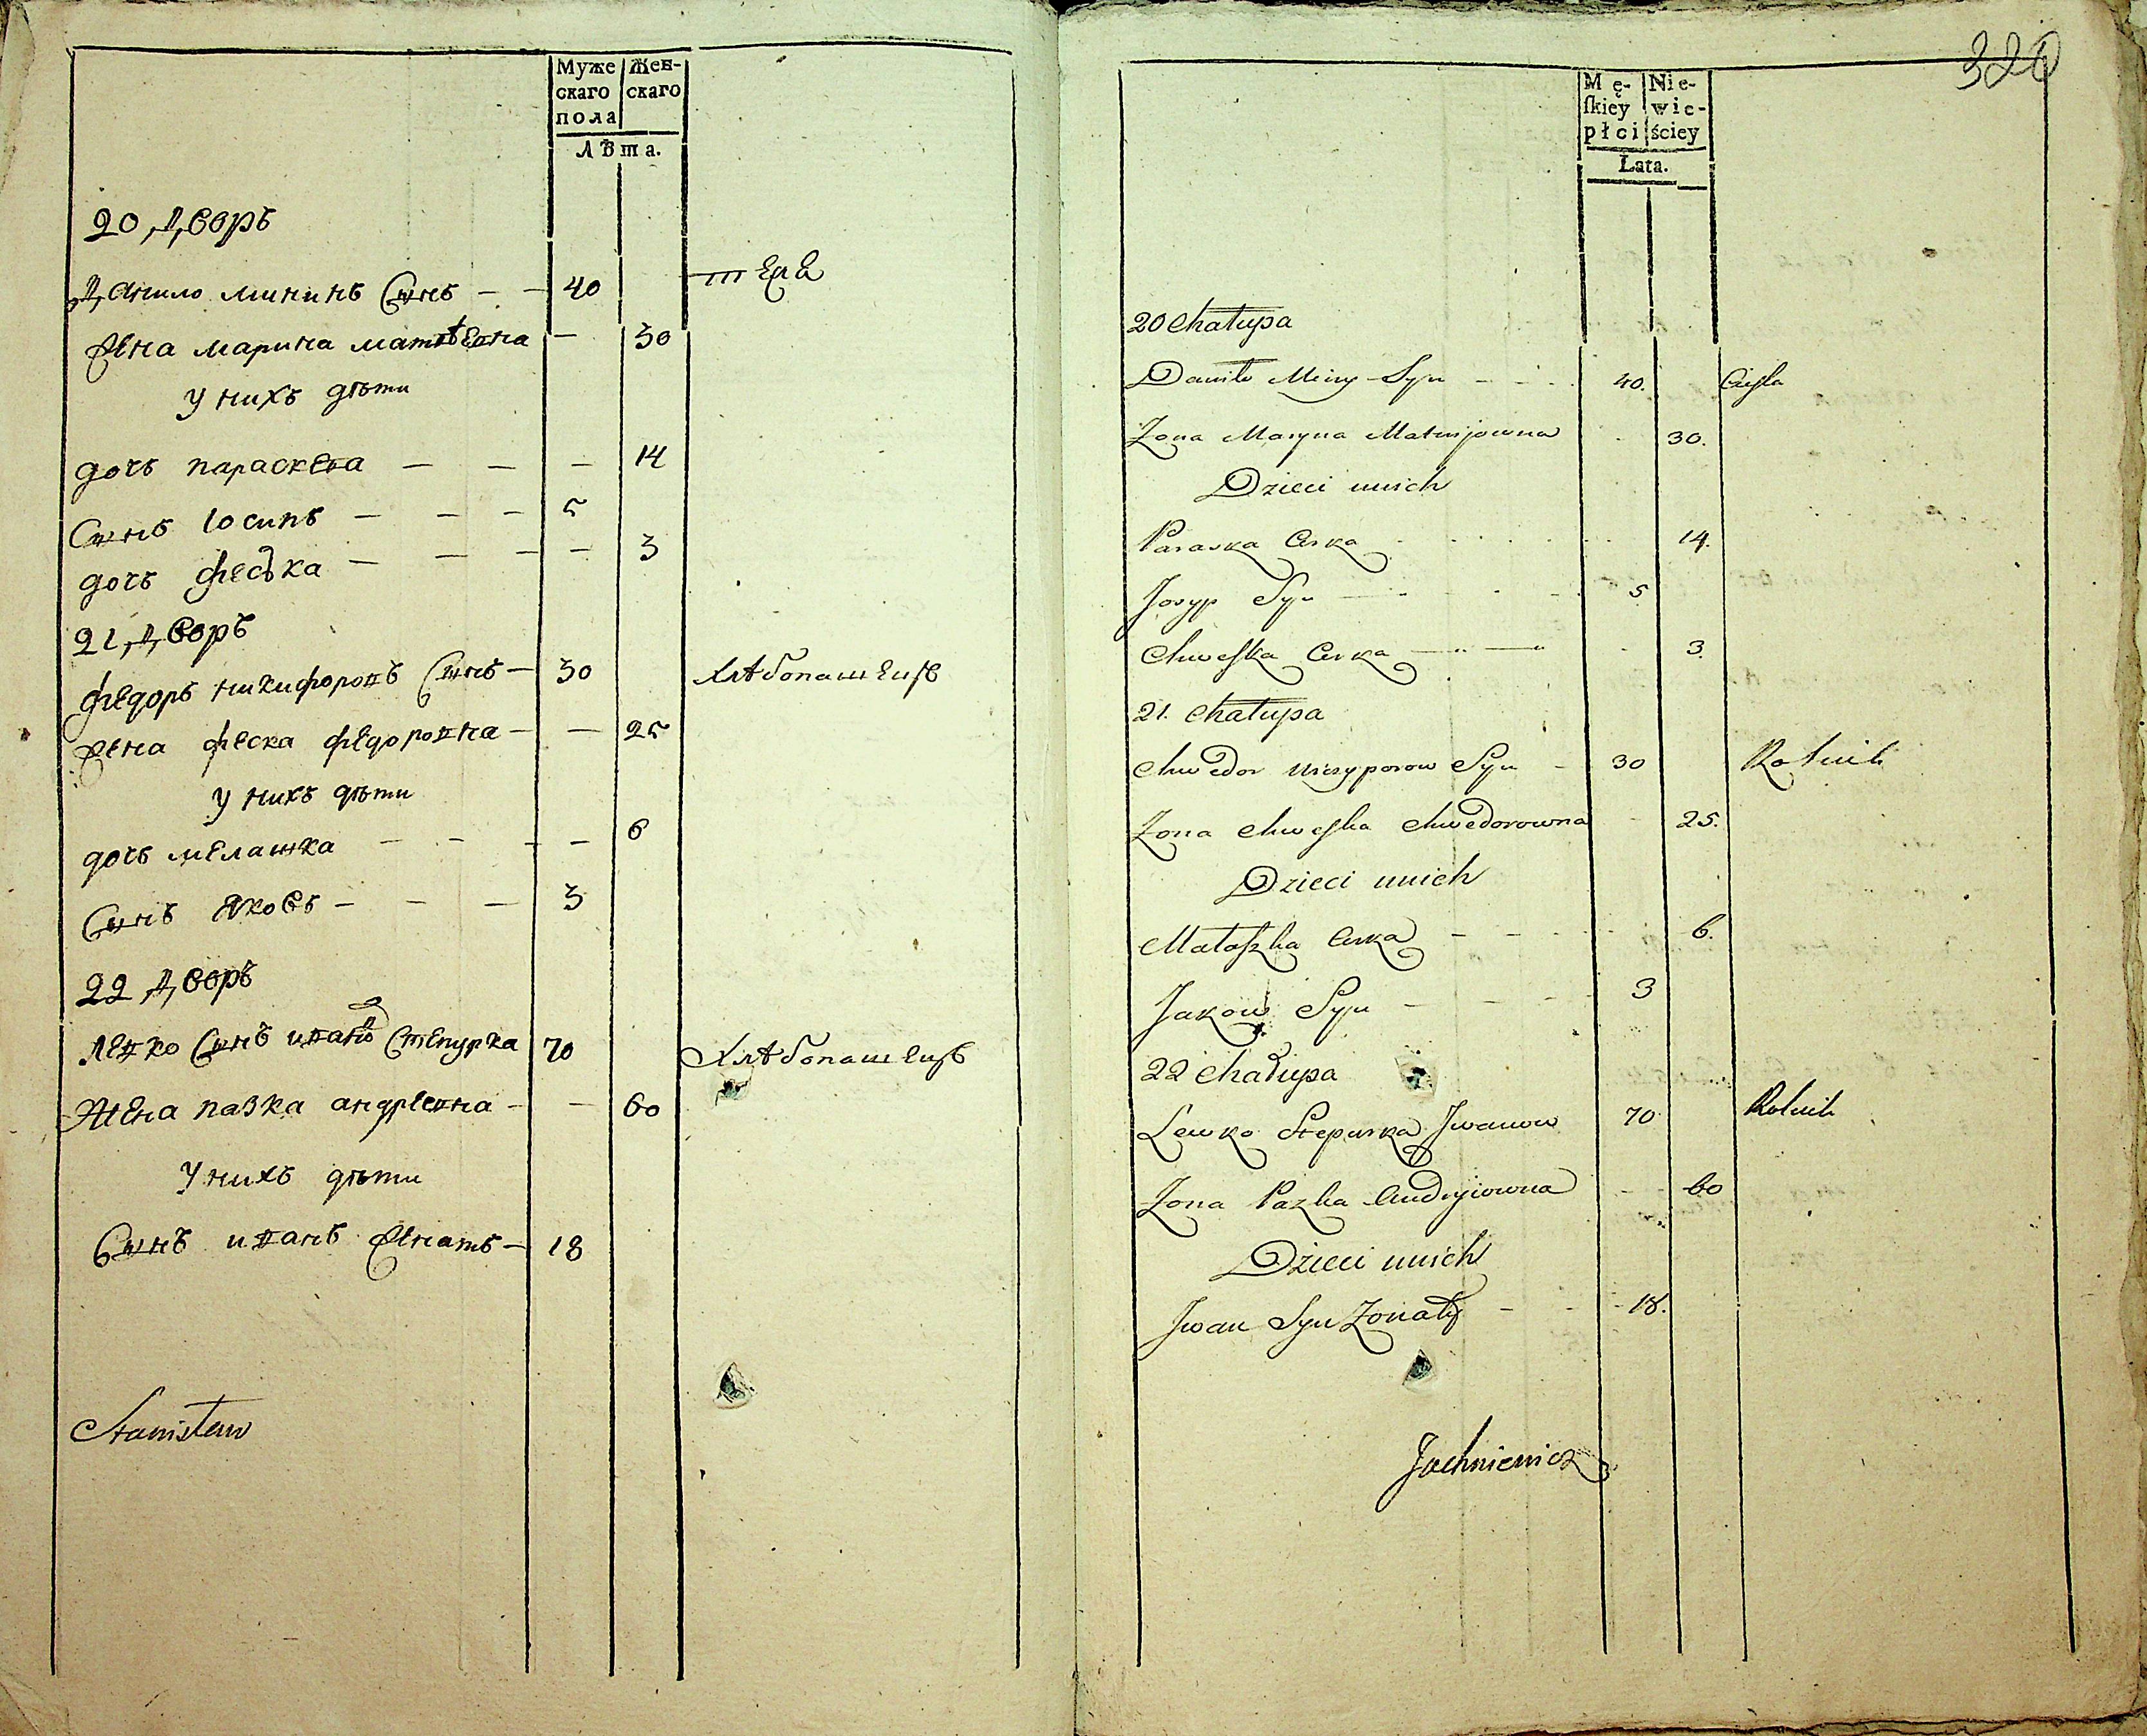 Муже
скаго
пола
Жен-
скаго
Лѣта.
20 Дворъ
Данило мининъ Сынъ — — 40
жена марина матвѣевна — 30
у нихъ дѣти
дочъ параскева — — — 14
Сынъ іосипъ — — — 5
дочъ феська — — — — 3
21 Дворъ
федоръ никифоровъ Сынъ — 30 хлѣбопашецъ
жена феска федоровна — — 25
у нихъ дѣти
дочъ мелашка — — — — 6
Сынъ яковъ — — — 3
22 Дворъ
левко Сынъ ивановъ Степурка 70 Хлѣбопашецъ
жена пазка андреевна — — 60
у нихъ дѣти
Сынъ иванъ женатъ — 18
Stanisław
320
Mę-
ſkiey
płci
Nie-
wie-
ściey
Lata.
20 Chałupa
Daniło Miny Syn — — 40. Cieśla
Zona Maryna Matwijowna 30.
Dzieci unich
Paraska Curka 14.
Josyp Syn — 5
Chweſka Curka — — 3.
21. Chałupa
Chwedor Niczyporow Syn — 30 Rolnik
Zona Chweſka Chwedorowna — 25.
Dzieci unich
Małaſzka Curka — — — 6.
Jakow Syn — — — 3
22 Chałupa
Lewko Stepurka Jwanow 70 Rolnik
Zona Pazka Andryiowna — — 60
Dzieci unich
Jwan Syn Zonaty — — 18.
Jachniewicz